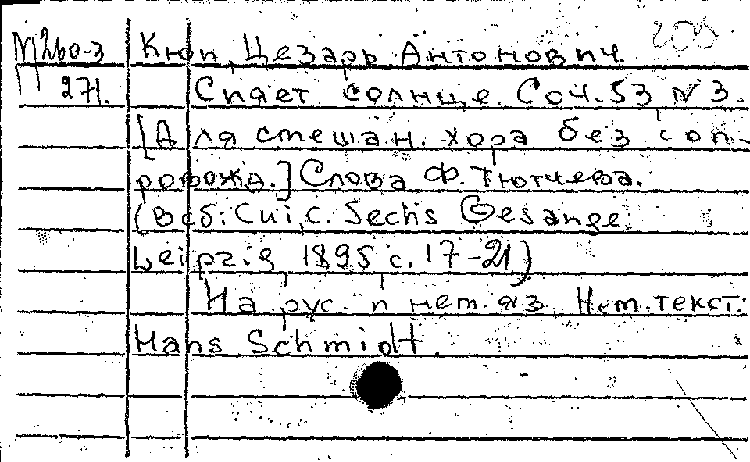 М260-3 Кюи, Цезарь Антонович. 200
П 271. Сияет солнце. Соч. 53 № 3.
[Для смешан. хора без соп-
ровожд.] Слова Ф. Тютчева.
(В сб: Cui, C. Sechs Gesange
Leipzig, 1895 с. 17-21)
На рус. и нем. яз. Нем. текст:
Hans Schmidt.